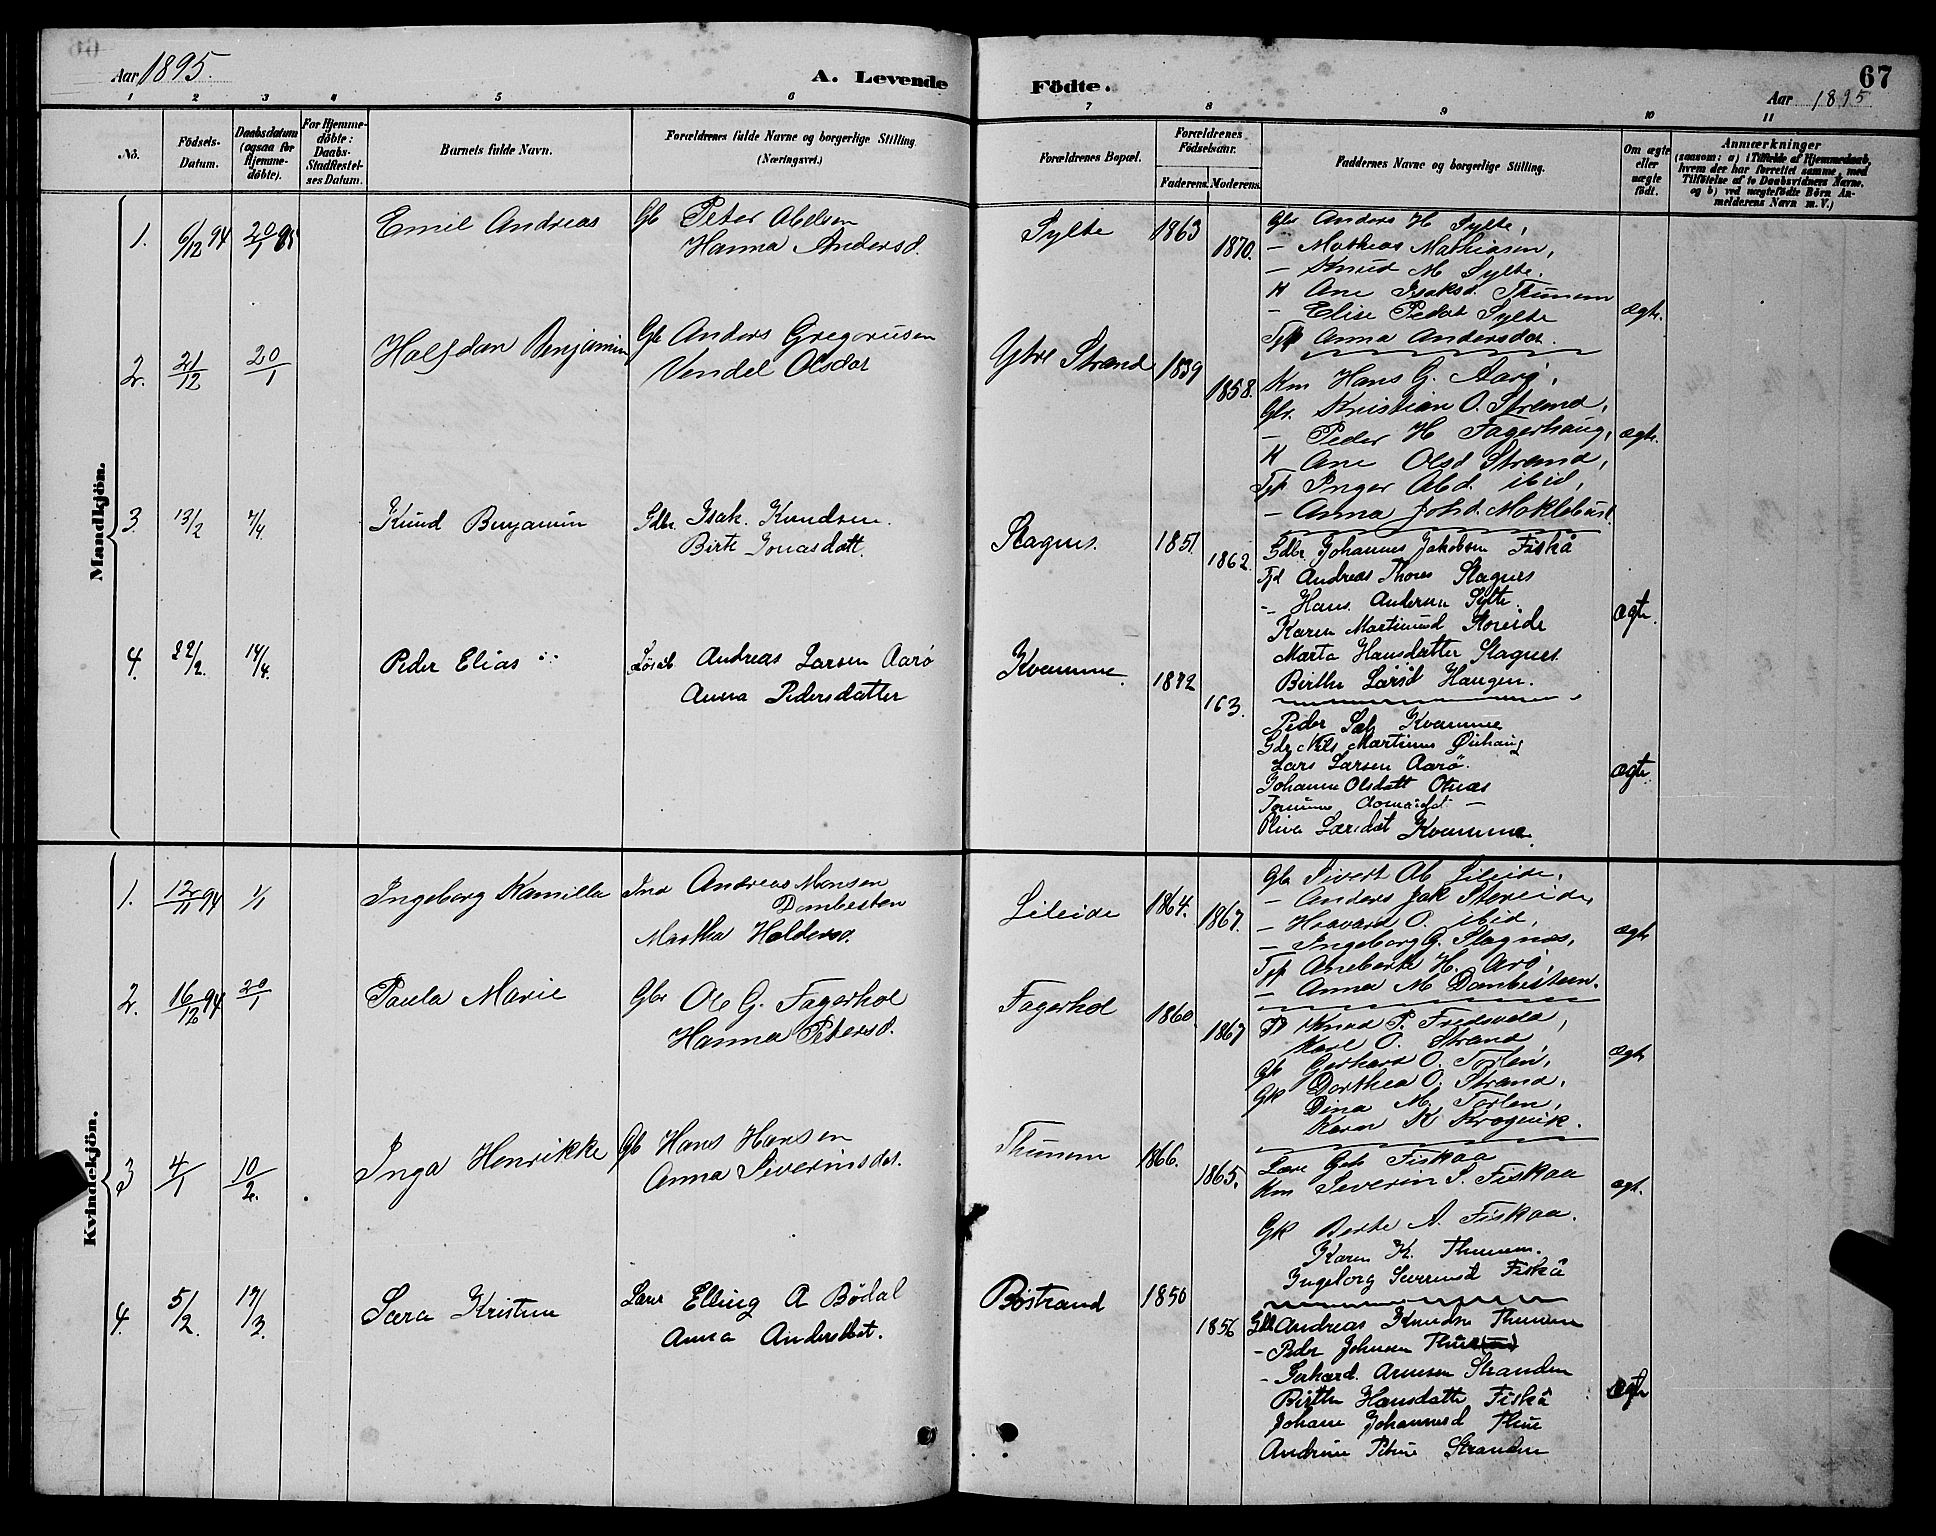 Aar 1895.
A. Levende
Födte.
67
Aar 1895
1 2 3 4 5 6 7 8 9 10 11
No.
Födsels-Datum.
Daabsdatum (ogsaa for Hjemme-döbte).
For Hjemme-döbte: Daabs-Stadfestel-ses Datum.
Barnets fulde Navn.
Forældrenes fulde Navne og borgerlige Stilling. (Næringsvei.)
Forældrenes Bopæl.
Forældrenes Födselsaar.
Faderens. Moderens.
Faddernes Navne og borgerlige Stilling.
Om ægte eller uægte födt.
Anmærkninger
(saasom: a) i Tilfælde af Hjemmedaab, hvem der har forrettet samme, med Tilföielse af to Daabsvidners Navne, og b) ved uægtefödte Börn An-melderens Navn m. V.)
Mandkjön.
1. 6/12 94 20/1 95 Emil Andreas Gb Peter Abelsen
Hanna Andersd.
Sylte 1863 1870.
Gbr Anders H Sylte,
- Mathias Mathiasen,
- Knud M Sylte.
K Ane Isaksd. Thunem
- Elise Pedat Sylte
Tp Anna Andersdat.
ægte.
2. 21/12 20/1 Halfdan Benjamin Gb Anders Gregoriusen
Vendel Olsdat
Ytre Strand 1839 1858.
Km Hans G. Aarö,
Gbr. Kristian O. Strand,
- Peder H Fagerhaug,
K Ane Olsd Strand,
Tp Inger Abd. ibid,
- Anna Johd. Moklebust.
ægte.
3. 13/2 7/4 Knud Benjamin Gdbr. Isak Knudsen.
Birte Jonasdatt.
Slagnes. 1851 1862.
Gdbr Johannes Jakobsen Fiskå
Tjd Andreas Thores Slagnes
- Hans Andersen Sylte
Karen Martinusd Storeide
Marta Hansdatter Slagnes
Birthe Larsd Haugen.
ægte.
4. 22/2. 14/4. Peder Elias Løsarb Andreas Larsen Aarø
Anna Pedersdatter
Kvamme. 1872 163.
Peder Kvamme
Gdr Nils Martinus
Lars Larsen Aarö.
Johanne Olsdatt Otnæs
Oliva Larsdat Kvamme.
ægte.
Kvindekjön.
1. 12/11 94 1/1 Ingeborg Kamilla Ind Andreas Monsen
Dombesten
Martha Haldersd.
Lileide 1864. 1867.
Gb Sivert Ab Lileide,
- Anders Jak Storeide,
- Haavard O. ibid,
- Ingeborg G. Slagnæs,
Tp Aneberte H. Arö,
- Anna M Dombesten.
ægte
2. 16/12 94 20/1 Paula Marie Gbr Ole G. Fagerhol
Hanna Petersd.
Fagerhol 1860. 1867
P Knud P. Fredsvola,
Karl O. Strand,
Gb Gerhard O. Torlen,
Gk Dorthea O. Strand.
Dina M. Torlen,
Karn K Krogvik.
ægte
3 4/1 10/2. Inga Henrikke Gb Hans Hansen
Anna Siverinsdat.
Thunem 1866. 1865.
Lars Fiskaa
Km Severin S. Fiskaa
Gk Berte A. Fiskaa.
Karen K. Thunem.
Ingeborg Severinsd Fiskå
ægt.
4. 5/2. 17/3. Sara Kristine Lærer Elling A Bödal
Anna Andersdat.
Böstrand 1850 1856
Gdb Andreas Knudsen Thunem
- Peder Johnsen Thue
- Gerhard Arnesen Stranden
Birthe Hansdatter Fiskå
Johane Johannesd Thue
Andrine Petrine Stranden
ægte